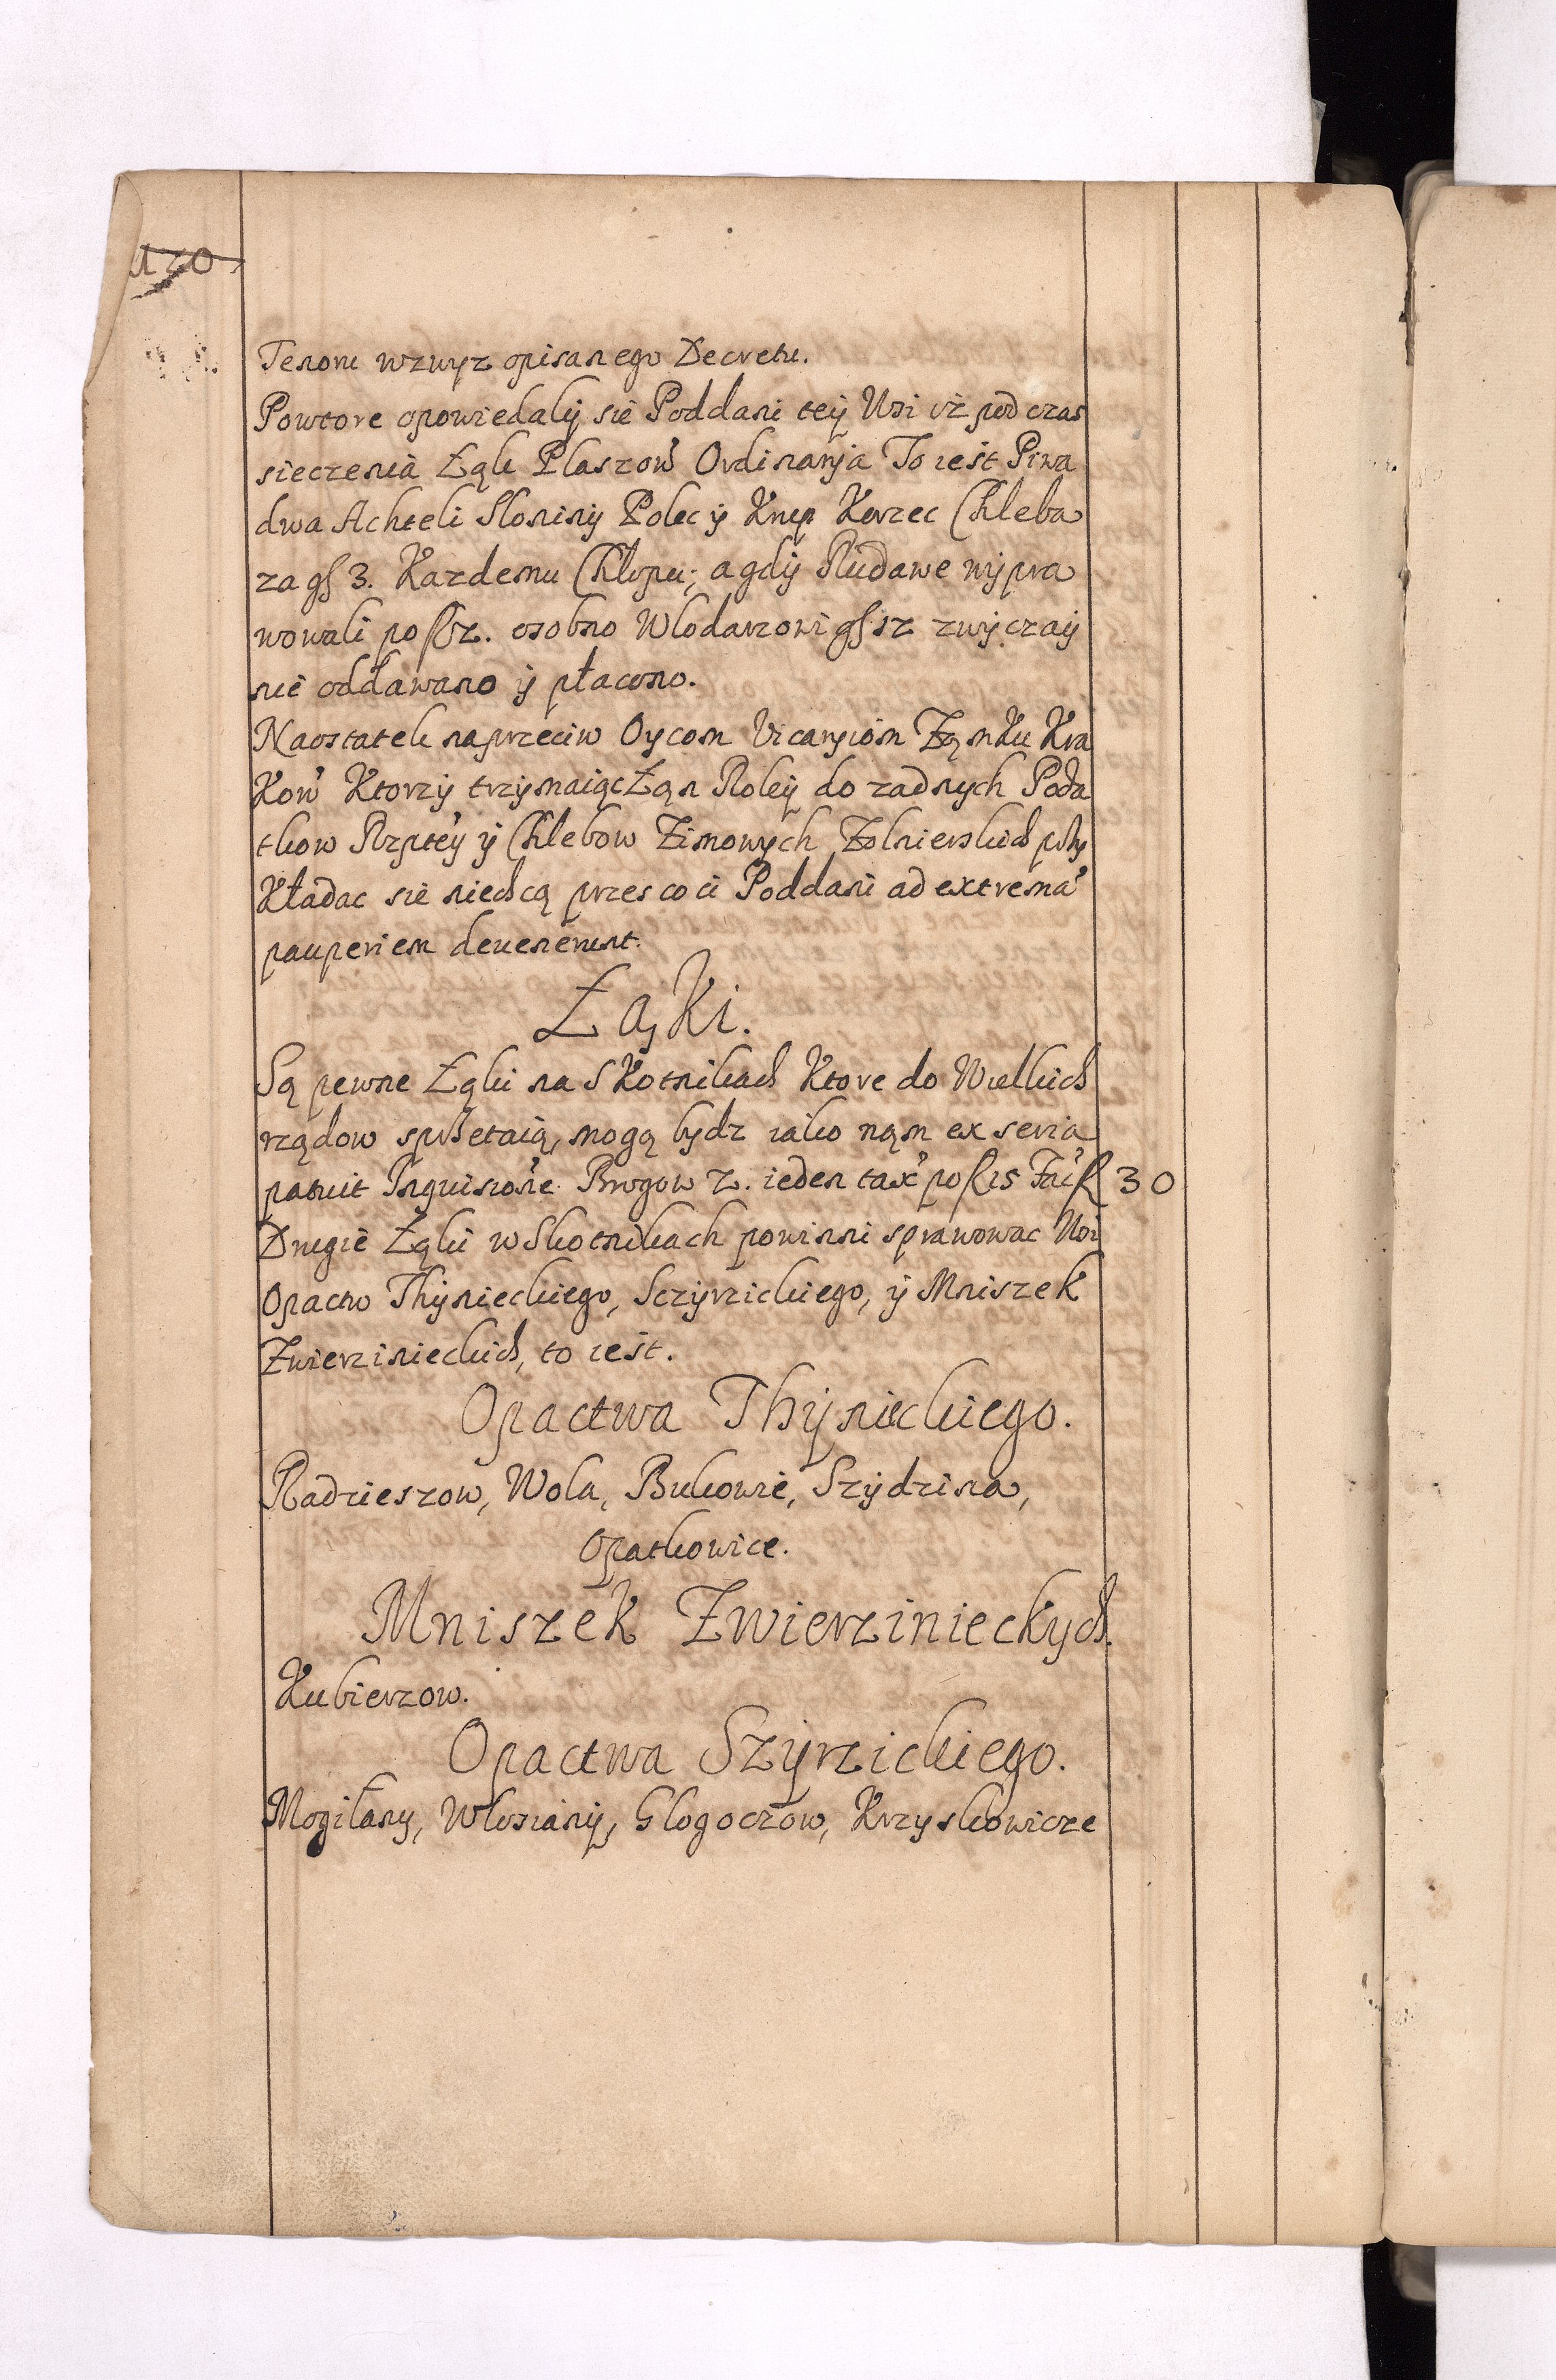 Tenoru wzwyz opisanego Decretu.
Powtore opowiedaly się Poddani tey Wsi iż pod czas
sieczenia Łąk Plaszow Ordinaryia To iest Piwa
dwa Achteli Słoniny Połec y Krup Korzec Chleba
za gł 3. Kazdemu Chłopu; a gdy Rudawe wypra
wowali po 2. osobno Wlodarzowi gł 12 zwyczay
nie oddawano y płacono.
Naostatek naprzeciw Oycom Vicaryiom Zamku Kra
Kow Ktorzy trzymaiąc Łan Roley do zadnych Poda
tkow Rzptey y Chlebow Zimowych Zołnierskich przy
Kładac się niechcą przes co ci Poddani ad extrema
pauperiem devenerunt.
Łąki.
Są pewne Łąki na Skotnikach Ktore do Wielkich
rządow sprzetaią, mogą bydz iako nam ex seria
patuit Inquisione Brogow 2. ieden tax po fl 15 Faci fl 30
Drugie Łąki w Skotnikach powinni sprawowac Wsi
Opactw Thynieckiego, Sczyrzickiego, y Mniszek
Zwierzinieckich, to iest.
Opactwa Thynieckiego.
Radzieszow, Wola, Bukowie, Szydzina,
Opatkowice.
Mniszek Zwierzinieckych.
Kubierzow.
Opactwa Szyrzickiego.
Mogilany, Wlosiany, Glogoczow, Krzyskowicze